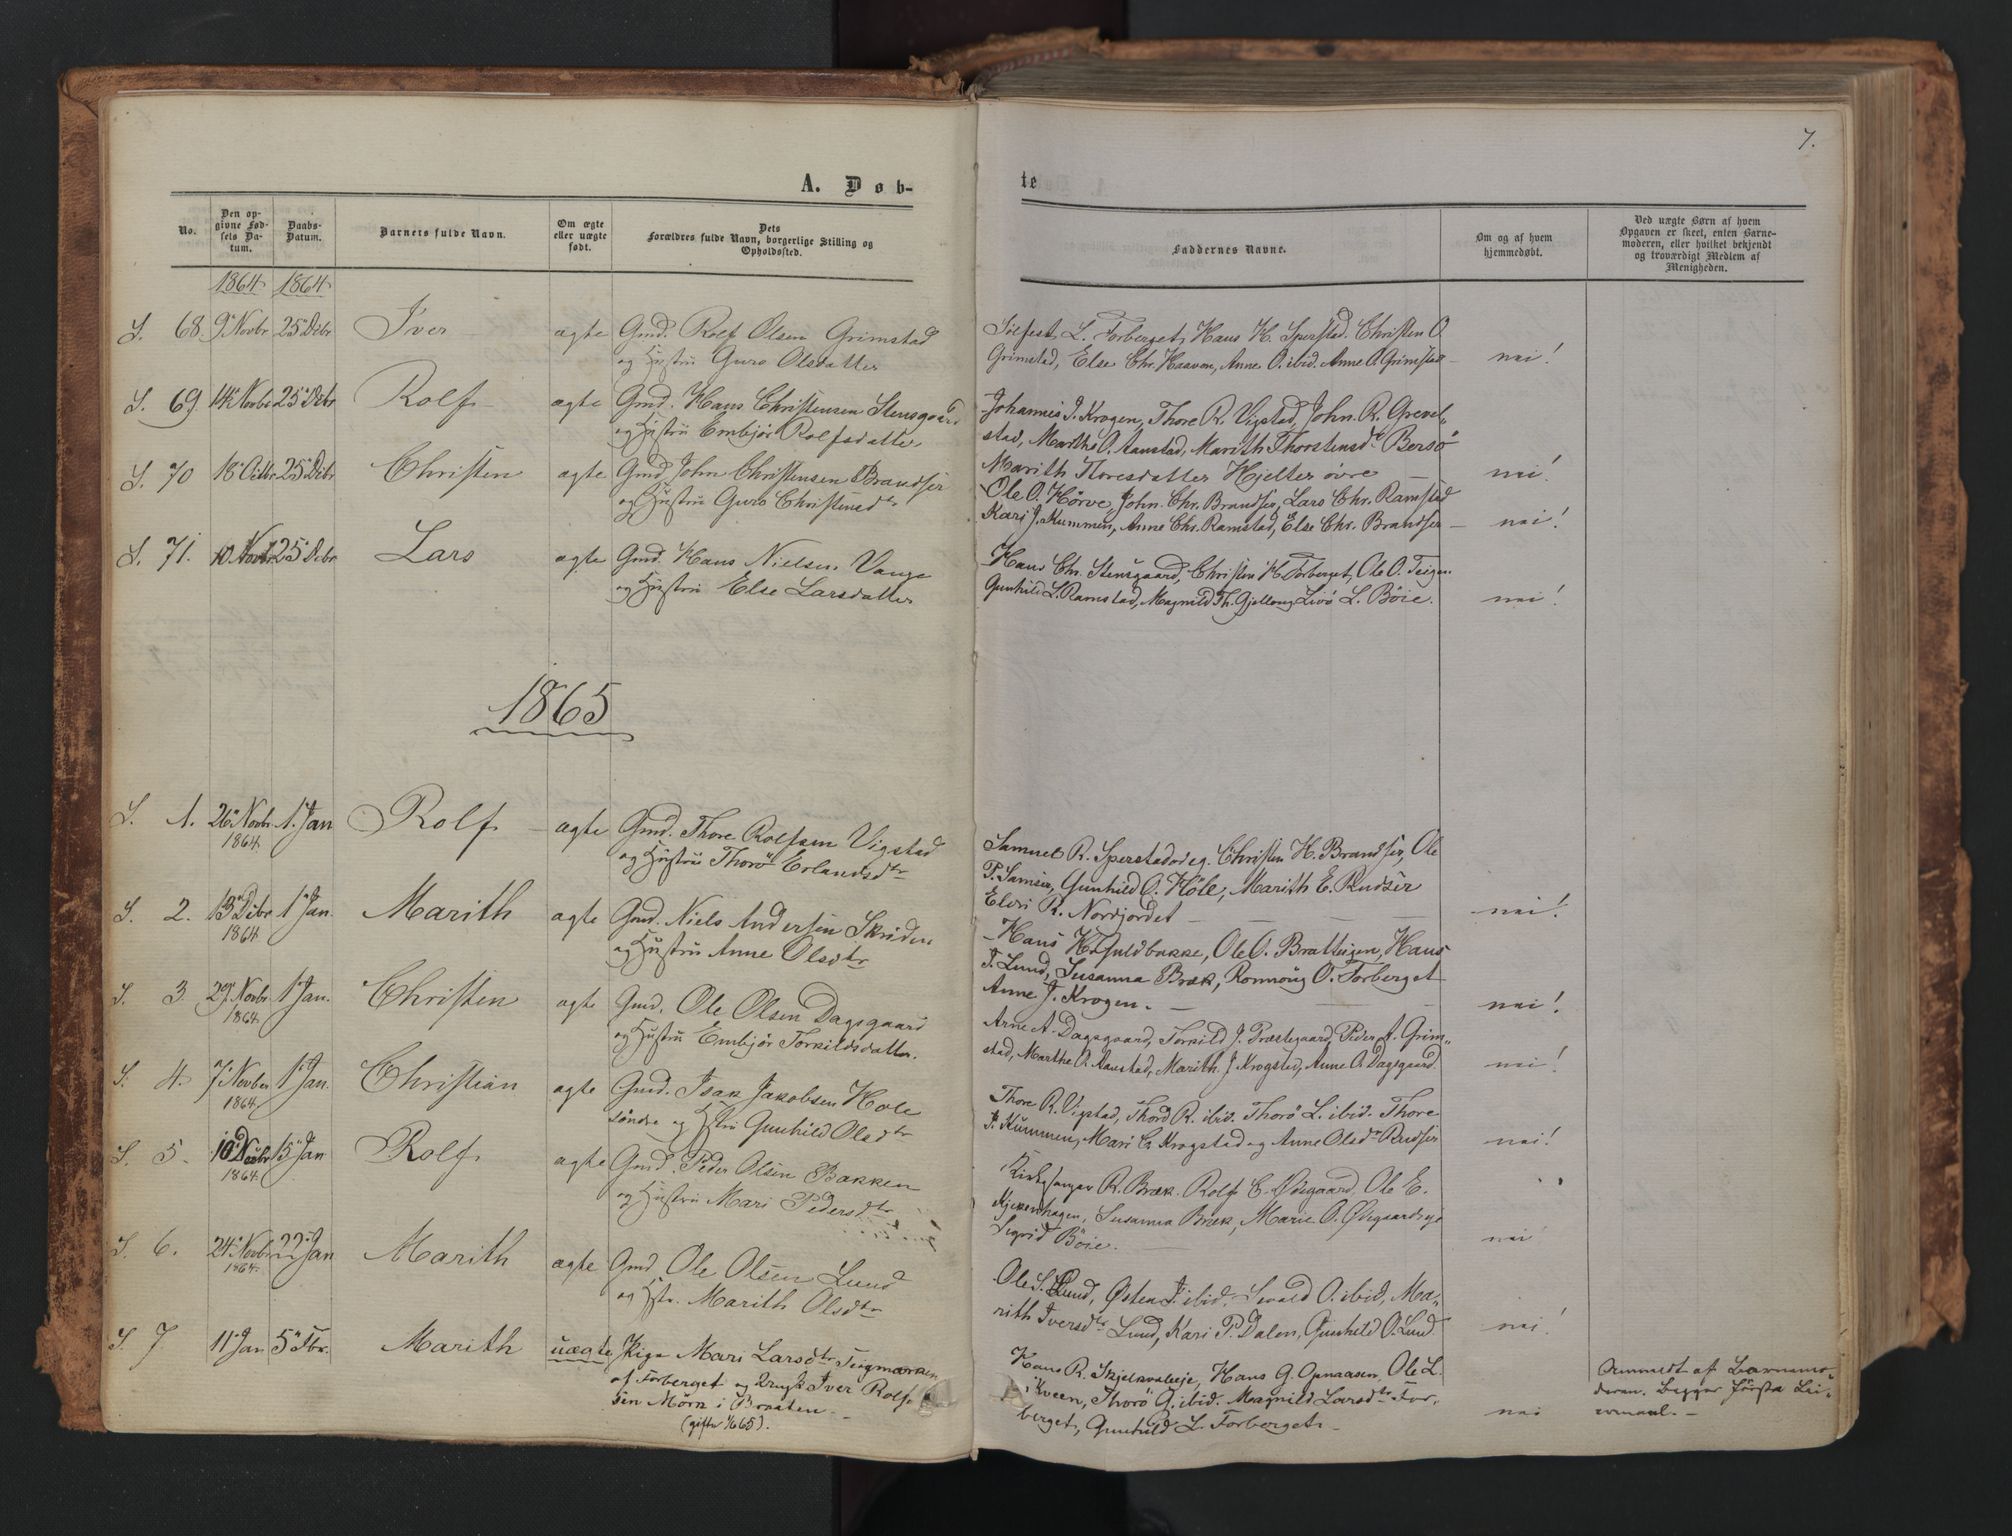 7.
A. Døb-
te
No.
Den op-
givne Fød-
sels Da-
tum.
Daabs-
Datum.
Barnets fulde Navn.
Om ægte
eller uægte
født.
Dets
Forældres fulde Navn, borgerlige Stilling og
Opholdssted.
Faddernes Navne.
Om og af hvem
hjemmedøbt.
Ved uægte Børn af hvem
Opgaven er skeet, enten Barne-
moderen, eller hvilket bekjendt
og troværdigt Medlem af
Menigheden.
1864 1864
S. 68. 9' Novbr 25' Dcbr Iver ægte Gmd. Rolf Olsen Grimstad
og Hustru Guro Olsdatter
L. Forberget, Hans H. Sperstad. Christen O
Grimstad, Else Chr. Haaven, Anne O. ibid. Anne A Grimstad nei!
S. 69 14' Novbr 25' Dcbr Rolf ægte Gmd. Hans Christensen Stensgaard
og Hustru Embjør Rolfsdatter
Johannes J. Krogen, Thore R. Vigstad, John. R. Grevel-
stad, Marthe O. Aanstad, Marith Thorstensd. Bersø
Marith Thoresdatter Hjelter øvre nei!
S. 70 18' Octbr 25' Dcbr Christen ægte Gmd. John Christensen Brandser
og Hustru Guro Christensdtr
Ole O. Hørve, John. Chr. Brandser, Lars Chr. Ramstad
Kari J. Kummen, Anne Chr. Ramstad, Else Chr. Brandser nei!
S. 71. 10 Novbr 25' Dcbr Lars ægte Gmd. Hans Nielsen Vange
og Hustru Else Larsdatter
Hans Chr. Stensgaard, Christen H. Forberget, Ole O. Teigen
Gunhild L. Ramstad, Magnild Th. Gjellong Livø L. Bøie. nei!
1865
S. 1. 26' Novbr 1' Jan Rolf ægte Gmd. Thore Rolfsen Vigstad
1864.
og Hustru Thorø Erlandsdtr
Samuel R. Sperstad og Christen H. Brandser, Ole
P. Samser, Gunhild O. Høle, Marith E. Rudser
Eldri R. Nordjordet nei!
S. 2. 13' Dcbr 1' Jan. Marith ægte Gmd. Niels Andersen Skriden
1864
og Hustru Anne Olsdtr
Hans H. Guldbakke, Ole O. Bratteigen, Hans
J. Lund, Susanna Bræk, Ronnoug O. Forberget
Anne J. Krogen. nei!
S. 3. 29' Novbr 1' Jan. Christen ægte Gmd. Ole Olsen Dagsgaard
1864
og Hustru Embjør Torkildsdatter.
Arne A. Dagsgaard, Torkild J. Præstegaard, Peder A. Grim-
stad, Marthe O. Aanstad, Marith J Krogstad, Anne O. Dagsgaard. nei!
S. 4. 7' Novber 1' Jan. Christian ægte Gmd. Isak Jakobsen Hole
1864.
søndre og Hstru Gunhild Olsdtr
Thore R. Vigstad, Thord R. ibid. Thorø L. ibid. Thore
J. Kummen, Mari E. Krogstad og Anne Olsdtr Rudser nei!
S. 5. 10 Dcbr 15' Jan Rolf ægte Gmd. Peder Olsen Bakken
1864.
og Hustru Mari Pedersdtr
Kirkesanger R. Bræk. Rolf E. Øigaard, Ole E.
Kjekenhagen, Susanna Bræk, Marie O. Øigaard og
Sigrid Bøie. nei
S. 6. 24' Novbr 22' Jan Marith ægte Gmd Ole Olsen Lund
1864.
og Hstr. Marith Olsdtr
Ole S. Lund, Østen J. ibid, O. ibid, Ma-
rith Iversdtr Lund, Kari P. Dalen, Gunhild O. Lund. nei!
S. 7. 11' Jan 5' Fbr. Marith uægte Pige Mari Larsdtr Teigmarken
af Forberget og Ungk Iver Rolf-
sen Mørk i Braaten.
(gifte 1/6 65).
Hans R. Skjelkvaleeje, Hans G. Opnaasen, Ole L.
Kveen, Thorø G. ibid. Magnild Larsdtr For-
berget, Gunhild L. Forberget. nei
Anmeldt af Barnemo-
deren. Begges første Lei-
ermaal.